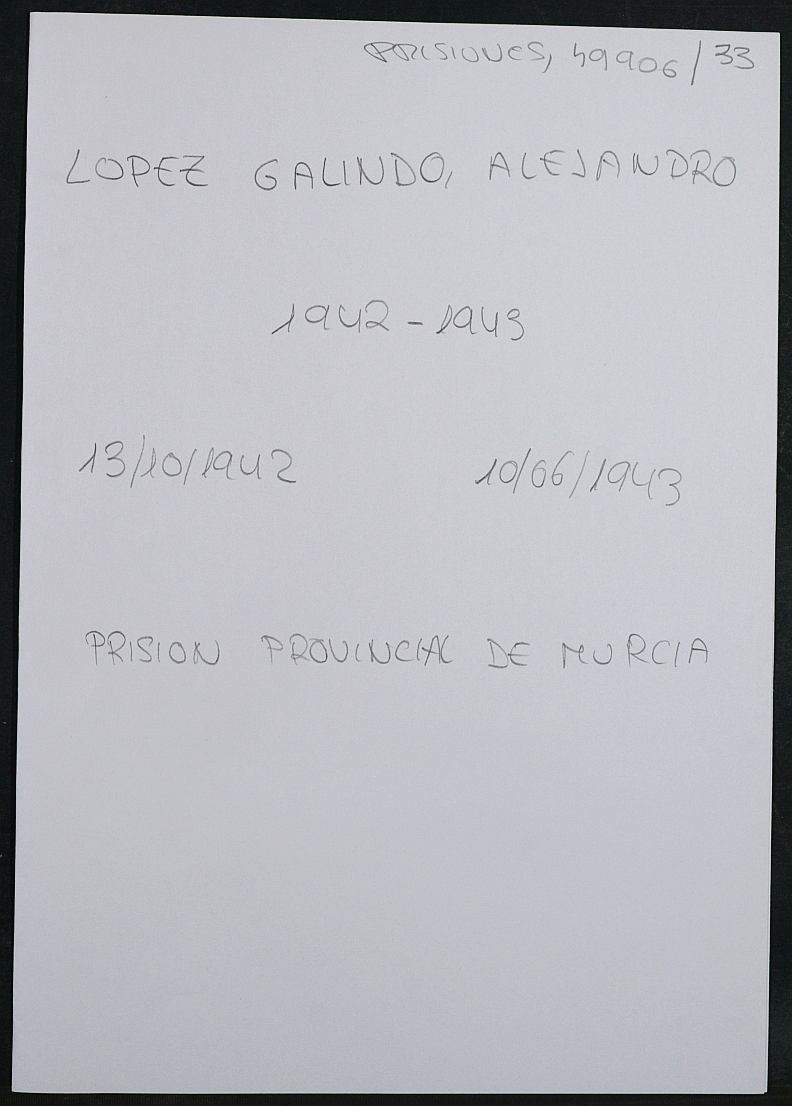 PRISIONES, 49906/33
LOPEZ GALINDO, ALEJANDRO
1942-1943
13/10/1942 10/06/1943
PRISION PROVINCIAL DE MURCIA